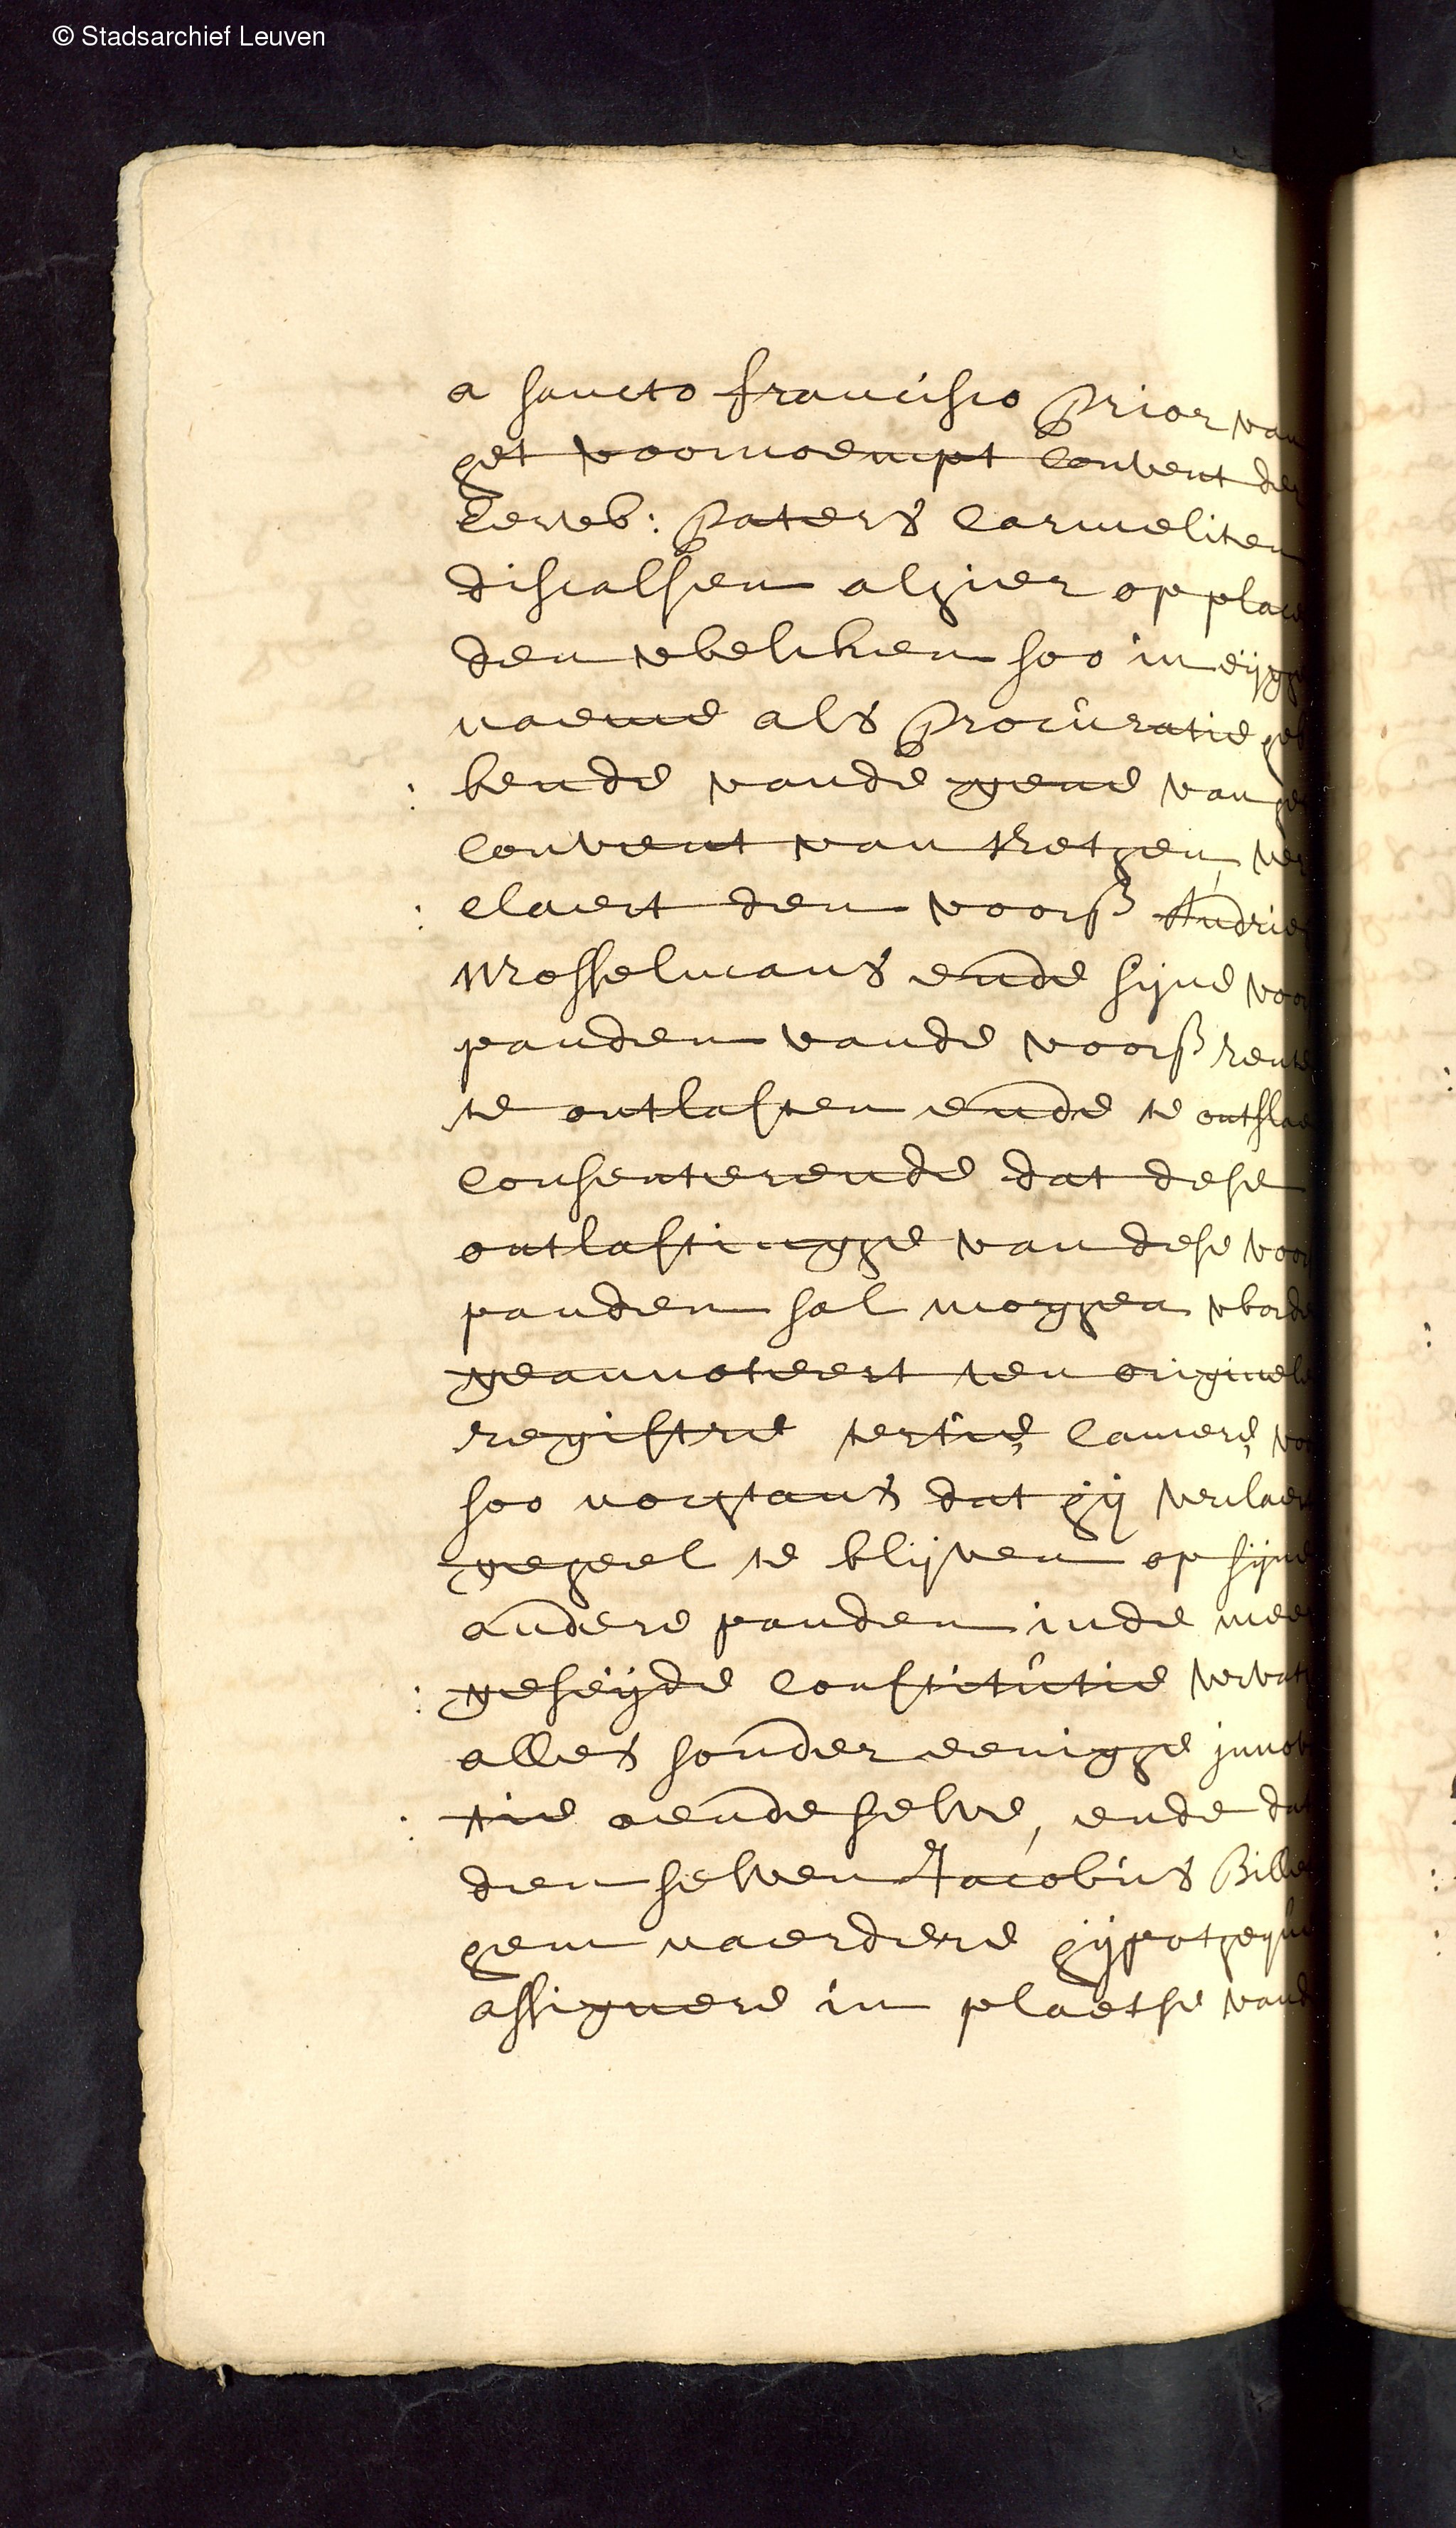 © Stadsarchief Leuven
a sancto francisco Prior van
het voornoempt Convent der
Eerweb: Paters Carmeliten
discalsen alhier op place
den welcken soo in eijg
naeme als Procúratie heb
: bende vande gene van het
Convent van
: claert den voors Andries
Mosselmans ende sijne voor
panden vande voors rente
te ontlasten ende te ontslae
Consenterende dat dese
ontlastingge van dese voor
panden sal moggen worde
geannoteert ten originele
registre tertie Camere
soo nochtans dat hij verclaer
geheel te blijven op sijne
andere panden inde mee
: geseijde Constitútie vervat
alles sonder eenigge innova
: tie aende selve, ende dat
den selven Jacobús Bille
hem naerdere hijpothequ
assignere in plaetse vand